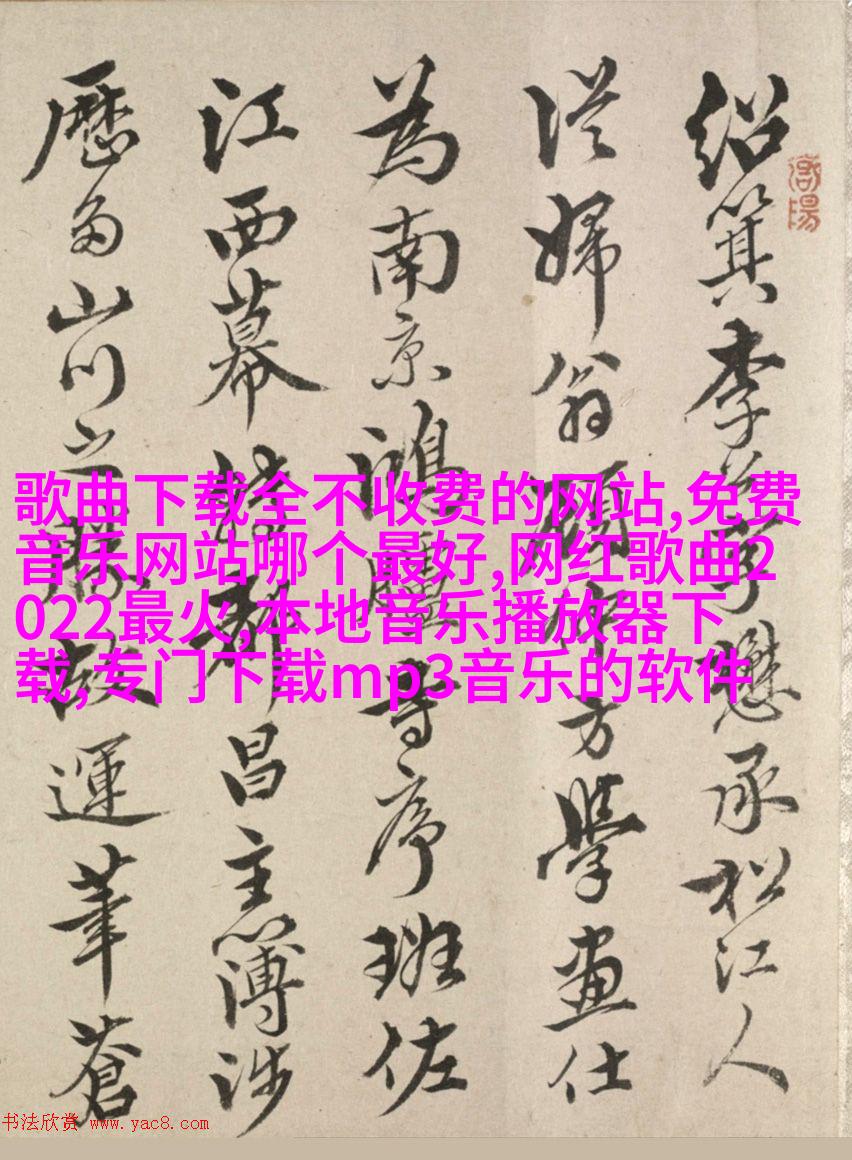 紹箕李字懋承松江人
從婦翁顧仲方學畫仕
為南京鴻臚寺序班佐
江西幕轉都昌主簿涉
歷多山川之勝故運筆蒼
歌曲下载全不收费的网站,免费
音乐网站哪个最好,网红歌曲2
022最火,本地音乐播放器下
载,专门下载mp3音乐的软件
书法欣赏 www.yac8.com